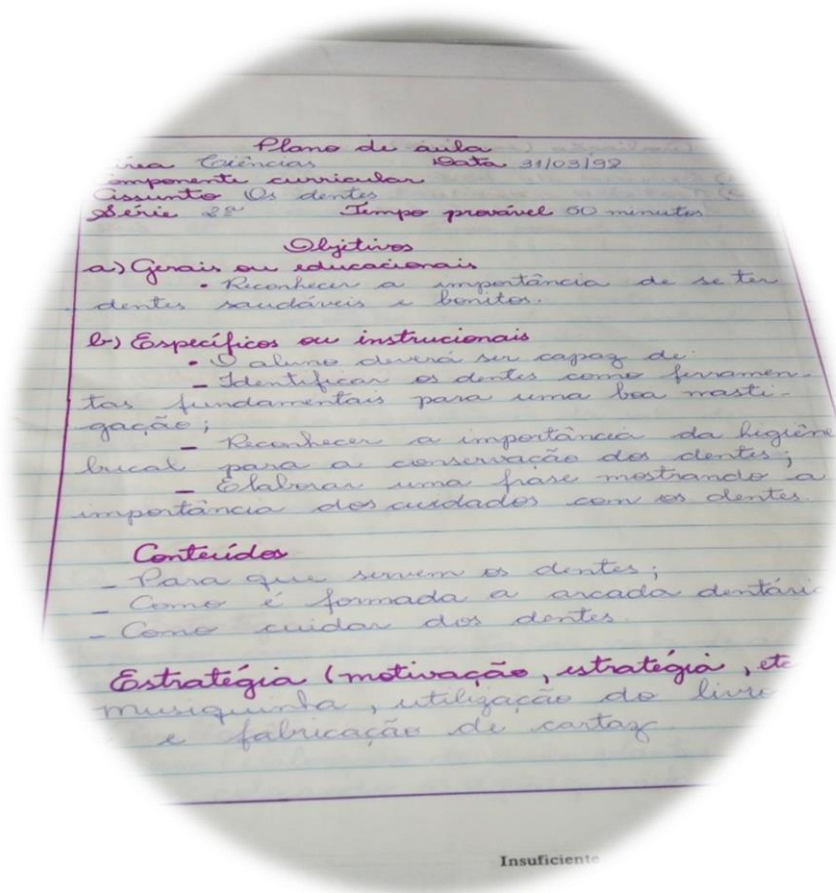 Plano de aula
Área Ciências Data 31/03/92
Componente curricular
Assunto Os dentes
Série 2ª Tempo provável 50 minutos
Objetivos
a) Gerais ou educacionais
• Reconhecer a importância de se ter
dentes saudáveis e bonitos.
b) Específicos ou instrucionais
• O aluno deverá ser capaz de:
– Identificar os dentes como ferramen-
tas fundamentais para uma boa masti-
gação;
– Reconhecer a importância da higiene
bucal para a conservação dos dentes;
– Elaborar uma frase mostrando a
importância dos cuidados com os dentes.
Conteúdos
– Para que servem os dentes;
– Como é formada a arcada dentári
– Como cuidar dos dentes.
Estratégia (motivação, estratégia, etc
musiquinha, utilização do livro
e fabricação de cartaz.
Insuficiente